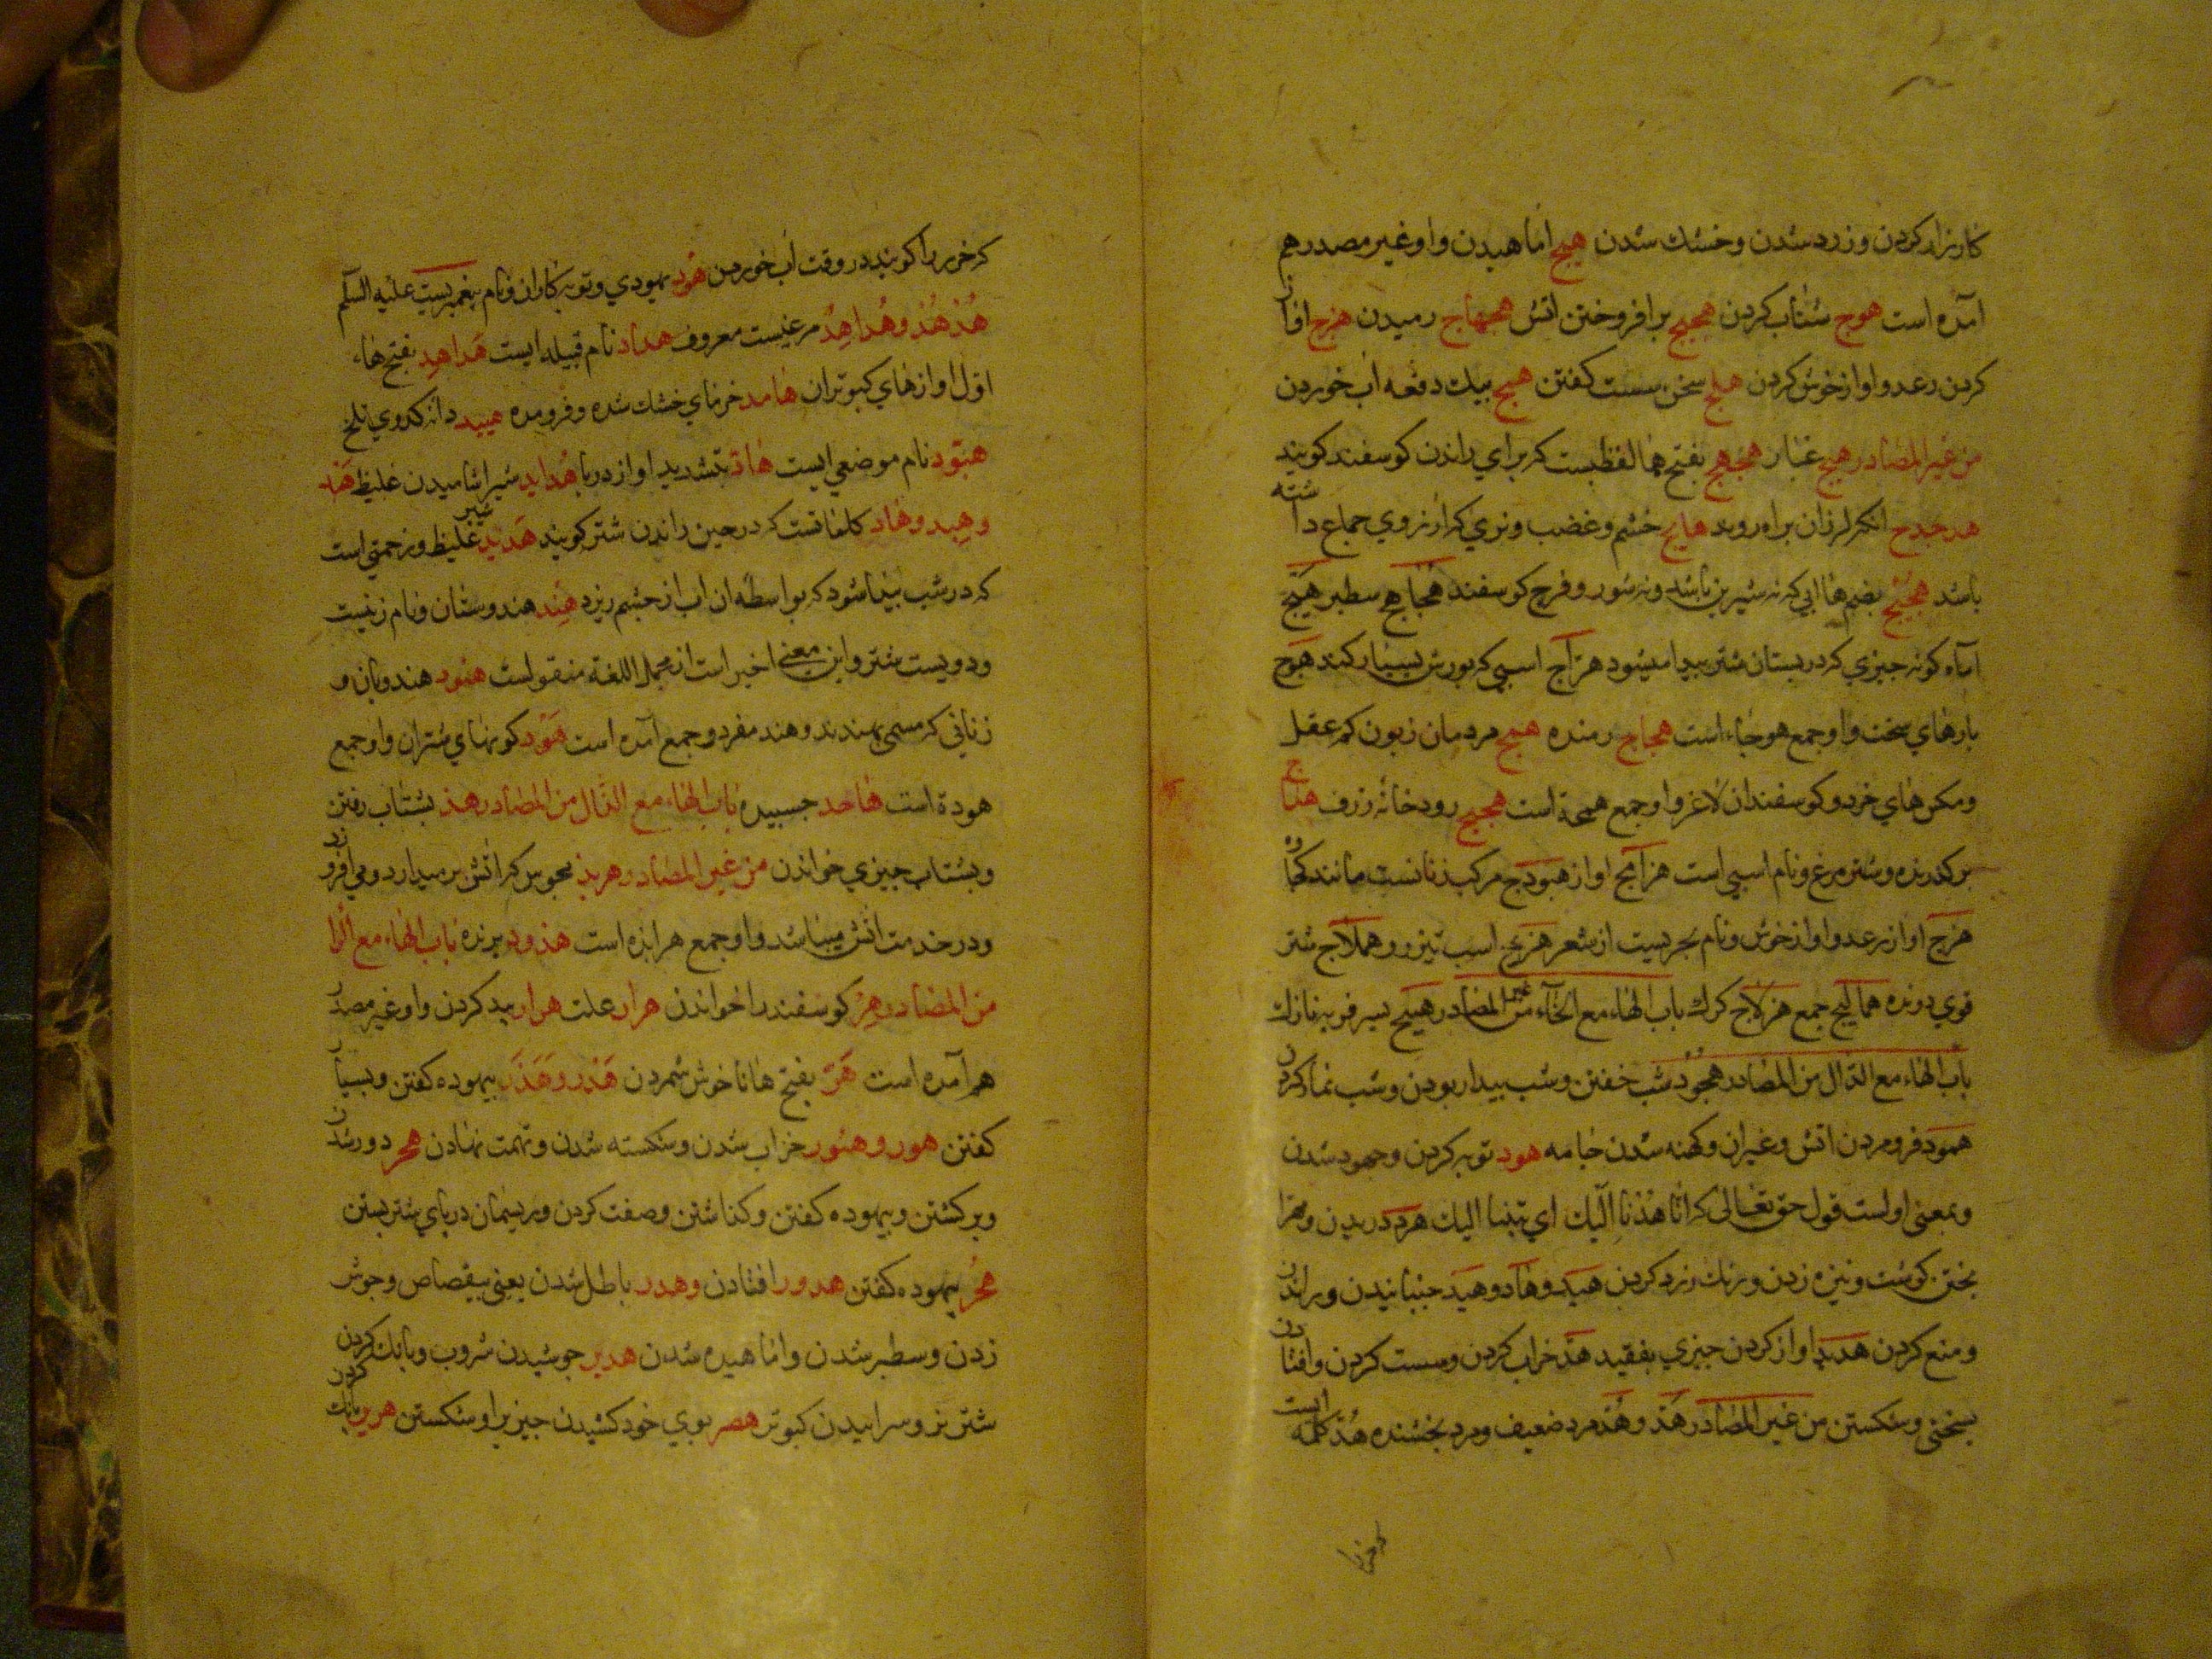 کارزار کردن و زرد شدن و خشك شدن هیج اماهیدن و او غیر مصدر هم
آمده است هوج شتاب کردن هجیج برافروختن اتش هجهاج رمیدن هزج اواز
کردن رعد و اواز خوش کردن هلج سخن سست کفتن هیج بیك دفعه اب خوردن
من غیر المصادر هیج غبار هجهج بفتح ها لفظیست که برای راندن کوسفند کویند
هدجدج انکه لرزان براه رود هایج خشم و غضب و نری که ارزوی جماع داشته
باشد هجیج بضم ها ابی که نه شیرین باشد و نه شور و فرج کوسفند هجاهج سطبر هیج
اماه کونه چیزی که در بستان شتر پیدا میشود هراج اسپی که بورش بسیار کند هوج
بارهای سخت و او جمع هوجاء است هجاج رمنده همج مردمان زبون کم عقل
و مکس های خرد و کوسفندان لاغر و او جمع همجة است هجیج رودخانه ژرف هداج
برکدرنده و شتر مرغ و نام اسپی است هزامج اواز هودج مرکب زنانست مانند کجاوه
هزج اواز رعد و اواز خوش و نام بحریست از شعر هزج اسب تیز رو و هملاج شتر
قوی دونده همالیج جمع هزلاج کرك باب الهاء مع الخاء من غیر المصادر هبیخ پسر فربه نازك
باب الهاء مع الدال من المصادر هجود شب خفتن و شب بیدار بودن و شب نماز کردن
همود فرو مردن اتش و غیر ان و کهنه شدن جامه هود توبه کردن و جهود شدن
و بمعنی اولست قول حق تعالی که انا هدنا الیك ای تبنا الیك هرد دریدن و مهرا
پختن کوشت و نیزه زدن و برنك زرد کردن هید و هاد و هید جنبانیدن و راندن
و منع کردن هدید اواز کردن چیزی بفقید هد خراب کردن و سست کردن و افتادن
بسختی و شکستن من غیر المصادر هد و هد مرد ضعیف و مرد بخشنده هد کلمه ایست
که خر را کویند در وقت اب خوردن هود یهودی و توبه کاران و نام پیغمبریست علیه السلم
هدهد و هداهد مرغیست معروف هداد نام قبیله ایست هداهد بفتح هاء
اول اوازهای کبوتران هامد خرمای خشك شده و فرو مرده هبید دانه کدوی تلخ
هبود نام موضعی ایست هاد بتشدید اواز دریا هداید شیر اشامیدن غلیظ هد
و هید و هاد کلماتست که در حین راندن شتر کویند هدید شیر غلیظ و زحمتی است
که در شب پیدا شود که بواسطه ان اب از چشم ریزد هند هندوستان و نام زنیست
و دویست شتر و این معنی اخیر است از مجمل اللغة منقولست هنود هندویان و
زنانی که مسمی بهندند و هند مفرد و جمع آمده است هود کوهنای شتران و او جمع
هودة است هاجد حسبیده باب الهاء مع الذال من المصادر هذ بشتاب رفتن
و بشتاب چیزی خواندن من غیر المصادر هربذ مجوس که اتش بر میدارد و می افروزد
و در خدمت اتش میباشد و او جمع هرابذه است هذوذ برنده باب الهاء مع الرا
من المصادر هر کوسفند را خواندن هرار علت هرار پید کردن و او غیر مصدر
هم آمده است هر بفتح ها ناخوش شمردن هذر و هذر بیهوده کفتن و بسیار
کفتن هور و هئور خراب شدن و شکسته شدن و تهمت نهادن هجر دور شدن
و برکشتن و بیهوده کفتن و کذاشتن و صفت کردن و ریسمان در پای شتر بستن
هجر بیهوده کفتن هدور افتادن و هدر باطل شدن یعنی بیقصاص و جوش
زدن و سطبر شدن و اماهیده شدن هدیر جوشیدن شروب و بانك کردن
شتر نر و سراییدن کبوتر هصر بوی خود کشیدن چیزیرا و شکستن هریر بانك کردن